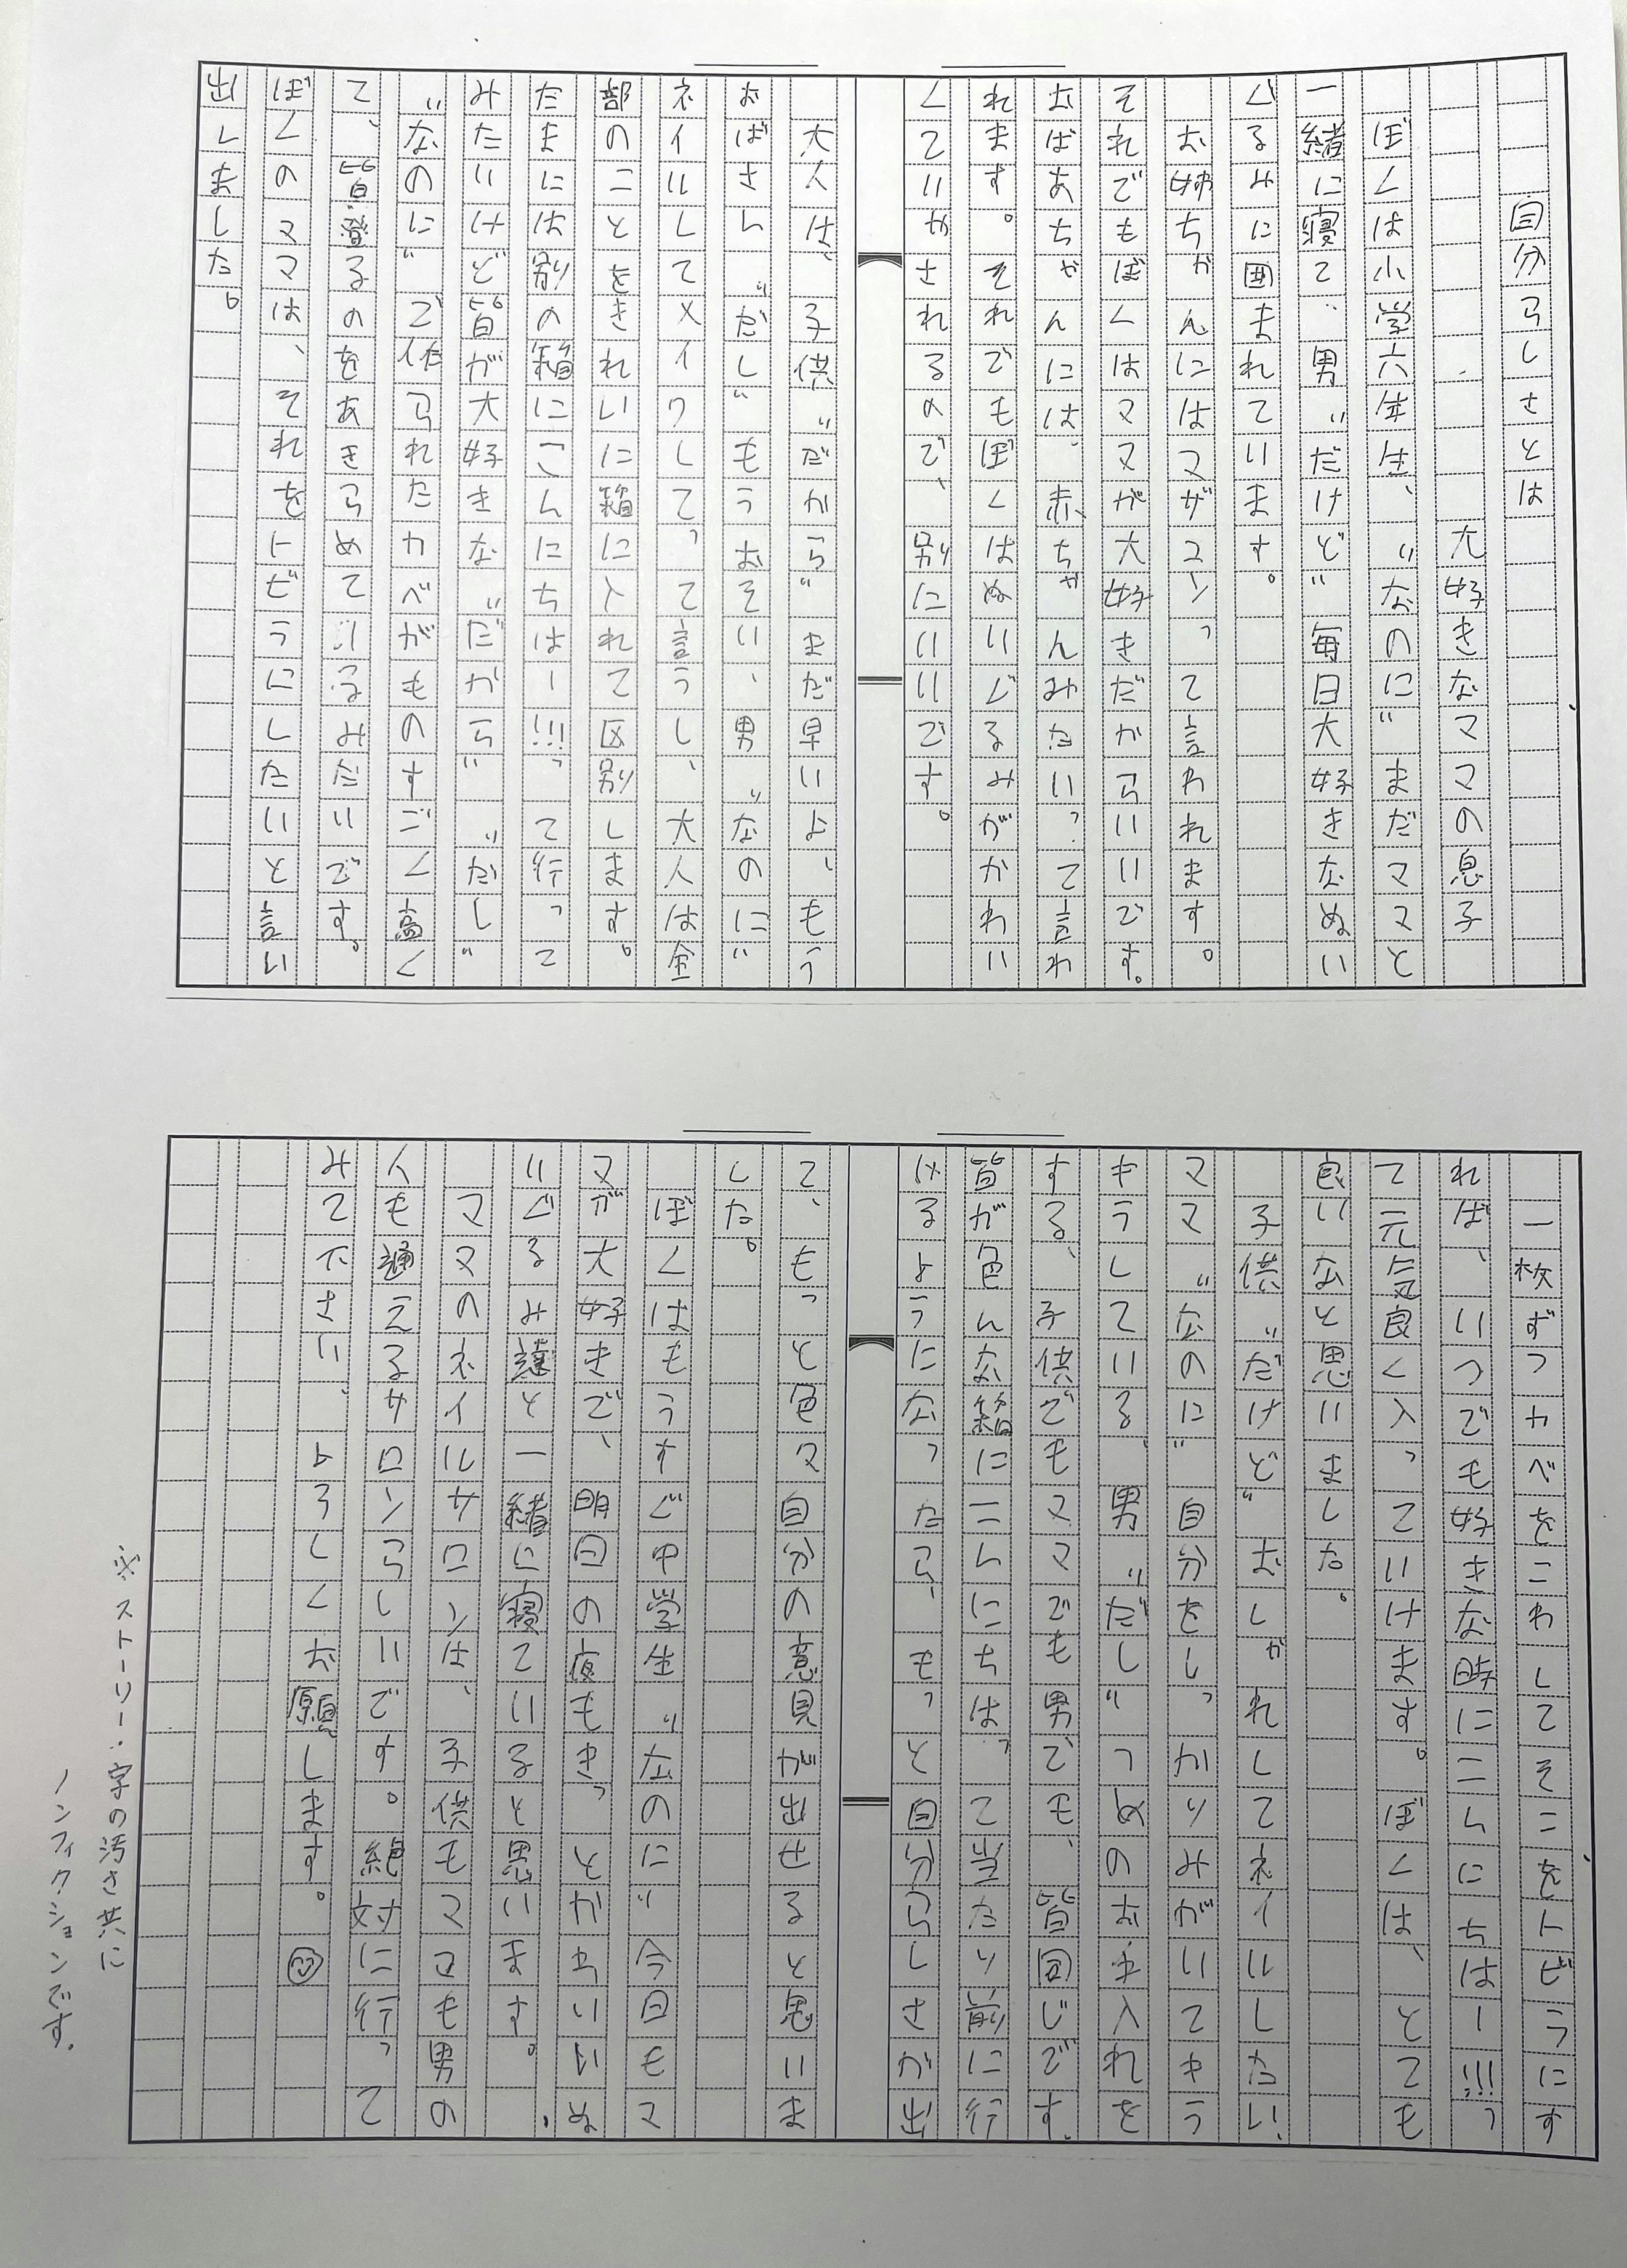 自分らしさとは
大好きなママの息子
ぼくは小学六年生、〝なのに〟まだママと
一緒に寝て、男〝だけど〟毎日大好きなぬい
ぐるみに囲まれています。
お姉ちゃんにはマザコンって言われます。
それでもぼくはママが大好きだからいいです。
おばあちゃんには、赤ちゃんみたいって言わ
れます。それでもぼくはぬいぐるみがかわい
くていやされるので、別にいいです。
大人は、子供〝だから〟まだ早いよ、もう
おばさん〝だし〟もうおそい、男〝なのに〟
ネイルしてメイクしてって言うし、大人は全
部のことをきれいに箱に入れて区別します。
たまには別の箱にこんにちはー!!!って行って
みたいけど皆が大好きな〝だから〟〝だし〟
〝なのに〟で作られたカベがものすごく高く
て、皆登るのをあきらめているみたいです。
ぼくのママは、それをトビラにしたいと言い
出しました。
一枚ずつカベをこわしてそこをトビラにす
れば、いつでも好きな時にこんにちはー!!!っ
て元気良く入っていけます。ぼくは、とても
良いなと思いました。
子供〝だけど〟おしゃれしてネイルしたい!
ママ〝なのに〟自分をしっかりみがいてキラ
キラしている、男〝だし〟つめのお手入れを
する、子供でもママでも男でも、皆同じです。
皆が色んな箱にこんにちはって当たり前に行
けるようになったら、もっと自分らしさが出
て、もっと色々自分の意見が出せると思いま
した。
ぼくはもうすぐ中学生〝なのに〟今日もマ
マが大好きで、明日の夜もきっとかわいいぬ
いぐるみ達と一緒に寝ていると思います。
ママのネイルサロンは、子供もママも男の
人も通えるサロンらしいです。絶対に行って
みて下さい、よろしくお願いします。
※ストーリー・字の汚さ共に
ノンフィクションです。